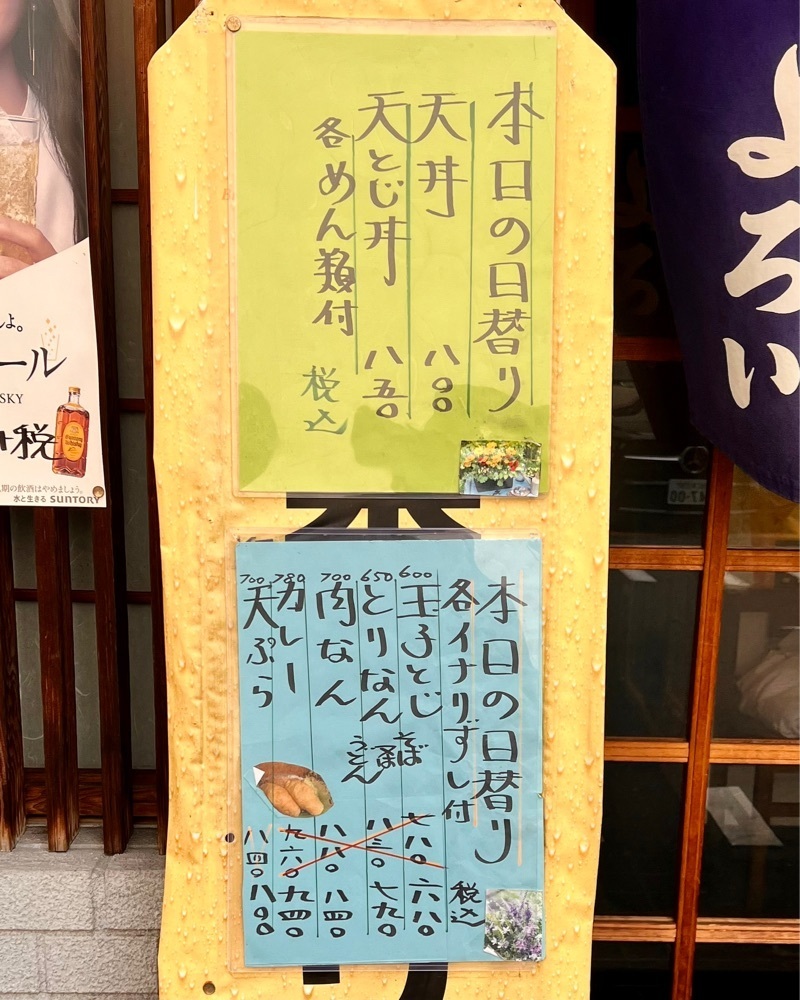 本日の日替り
天丼 八〇〇
天とじ丼 八五〇
各めん類付 税込
本日の日替り
各イナリずし付 税込
600 玉子とじ 七八〇 六八〇
そば
650 とりなん 八三〇 七九〇
うどん
700 肉なん 八八〇 八四〇
780 カレー 九六〇 九四〇
700 天ぷら 八四〇 八〇〇
よろい
ょ。
ール
SKY
+税
期の飲酒はやめましょう。
水と生きる SUNTORY
47-00